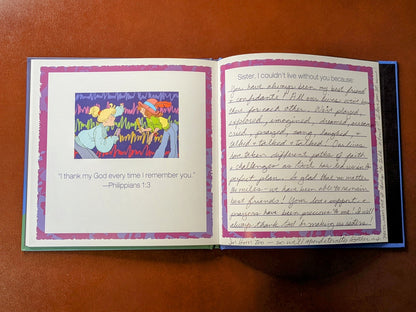 "I thank my God every time I remember you."
—Philippians 1:3
Sister, I couldn't live without you because:
You have always been my best friend
& confidante! All our lives we've been
there for each other. We've played,
explored, imagined, dreamed,
cried, prayed, sang, laughed &
talked & talked & talked. Our lives
have taken different paths of faith
& challenges as look as heaven's
perfect plan. So glad that no matter
the miles - we have been able to remain
best friends! Your love, support &
prayers have been precious to me. I will
always thank God for making us sisters!